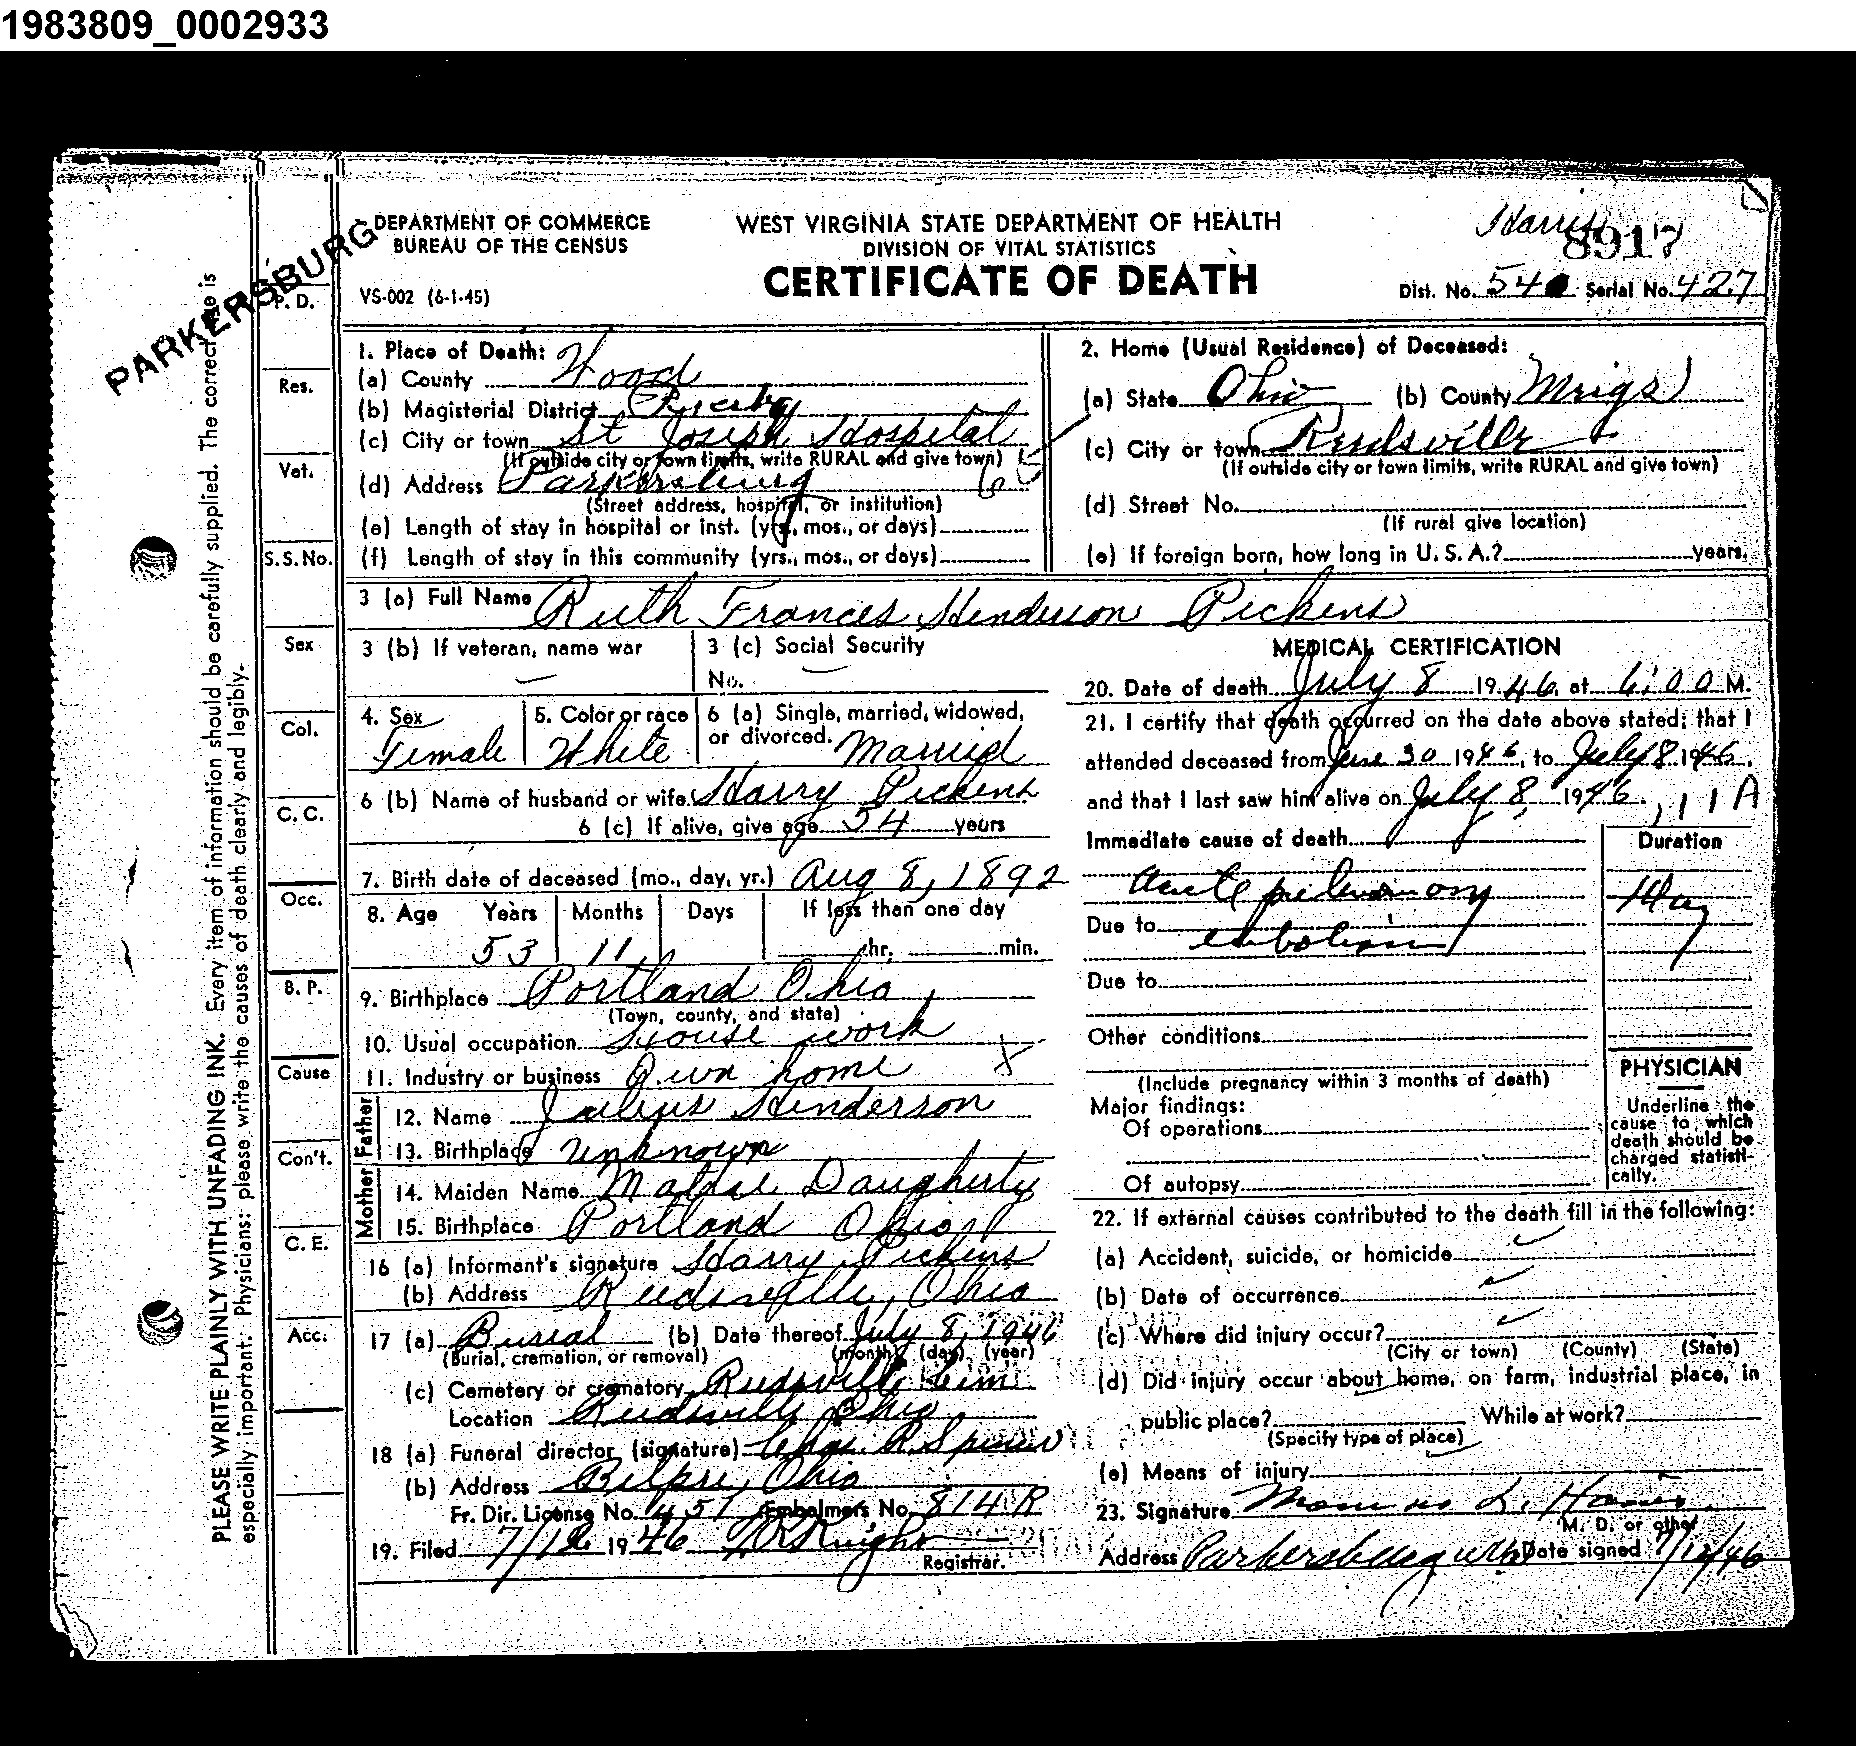 1983809_0002933
PARKERSBURG
DEPARTMENT OF COMMERCE
BUREAU OF THE CENSUS
VS-002 (6-1-45)
WEST VIRGINIA STATE DEPARTMENT OF HEALTH
DIVISION OF VITAL STATISTICS
CERTIFICATE OF DEATH
Harris
8917
Dist. No. 540 Serial No. 427
PLEASE WRITE PLAINLY WITH UNFADING INK. Every item of information should be carefully supplied. The correct age is
especially important. Physicians: please write the causes of death clearly and legibly.
P. D.
Res.
Vet.
S. S. No.
Sex
Col.
C. C.
Occ.
B. P.
Cause
Con't.
C. E.
Acc.
1. Place of Death:
(a) County Wood
(b) Magisterial District
(c) City or town St Joseph Hospital
(If outside city or town limits, write RURAL and give town)
(d) Address Parkersburg
(Street address, hospital, or institution)
(e) Length of stay in hospital or inst. (yrs., mos., or days)
(f) Length of stay in this community (yrs., mos., or days)
2. Home (Usual Residence) of Deceased:
(a) State Ohio (b) County Meigs
(c) City or town Reedsville
(If outside city or town limits, write RURAL and give town)
(d) Street No.
(If rural give location)
(e) If foreign born, how long in U. S. A.? years.
3 (a) Full Name Ruth Frances Henderson Pickens
3 (b) If veteran, name war —
3 (c) Social Security
No. —
4. Sex Female
5. Color or race White
6 (a) Single, married, widowed,
or divorced. Married
6 (b) Name of husband or wife Harry Pickens
6 (c) If alive, give age 54 years
7. Birth date of deceased (mo., day, yr.) Aug 8, 1892
8. Age Years Months Days If less than one day
53 11 hr. min.
9. Birthplace Portland Ohio
(Town, county, and state)
10. Usual occupation House work
11. Industry or business Own home X
Father
12. Name Julius Henderson
13. Birthplace unknown
Mother
14. Maiden Name Daugherty
15. Birthplace Portland Ohio
16 (a) Informant's signature Harry Pickens
(b) Address Reedsville, Ohio
17 (a) Burial (b) Date thereof July 8, 1946
(Burial, cremation, or removal) (month) (day) (year)
(c) Cemetery or crematory Reedsville Cem
Location Reedsville Ohio
18 (a) Funeral director (signature) Chas. R. Spencer
(b) Address Belpre, Ohio
Fr. Dir. License No. 451 Embalmers No. 814R
19. Filed 7/12 1946 Knight
Registrar.
MEDICAL CERTIFICATION
20. Date of death July 8 1946 at 6:00 M.
21. I certify that death occurred on the date above stated; that I
attended deceased from June 30 1946, to July 8 1946.
and that I last saw him alive on July 8, 1946. , 11A
Immediate cause of death Duration
Acute pulmonary 1 day
Due to embolism
Due to
Other conditions
(Include pregnancy within 3 months of death)
Major findings:
Of operations
Of autopsy
PHYSICIAN
Underline the
cause to which
death should be
charged statisti-
cally.
22. If external causes contributed to the death fill in the following:
(a) Accident, suicide, or homicide
(b) Date of occurrence
(c) Where did injury occur?
(City or town) (County) (State)
(d) Did injury occur about home, on farm, industrial place, in
public place? While at work?
(Specify type of place)
(e) Means of injury
23. Signature L. Harris
M. D. or other
Address Parkersburg W Va Date signed 7/12/46